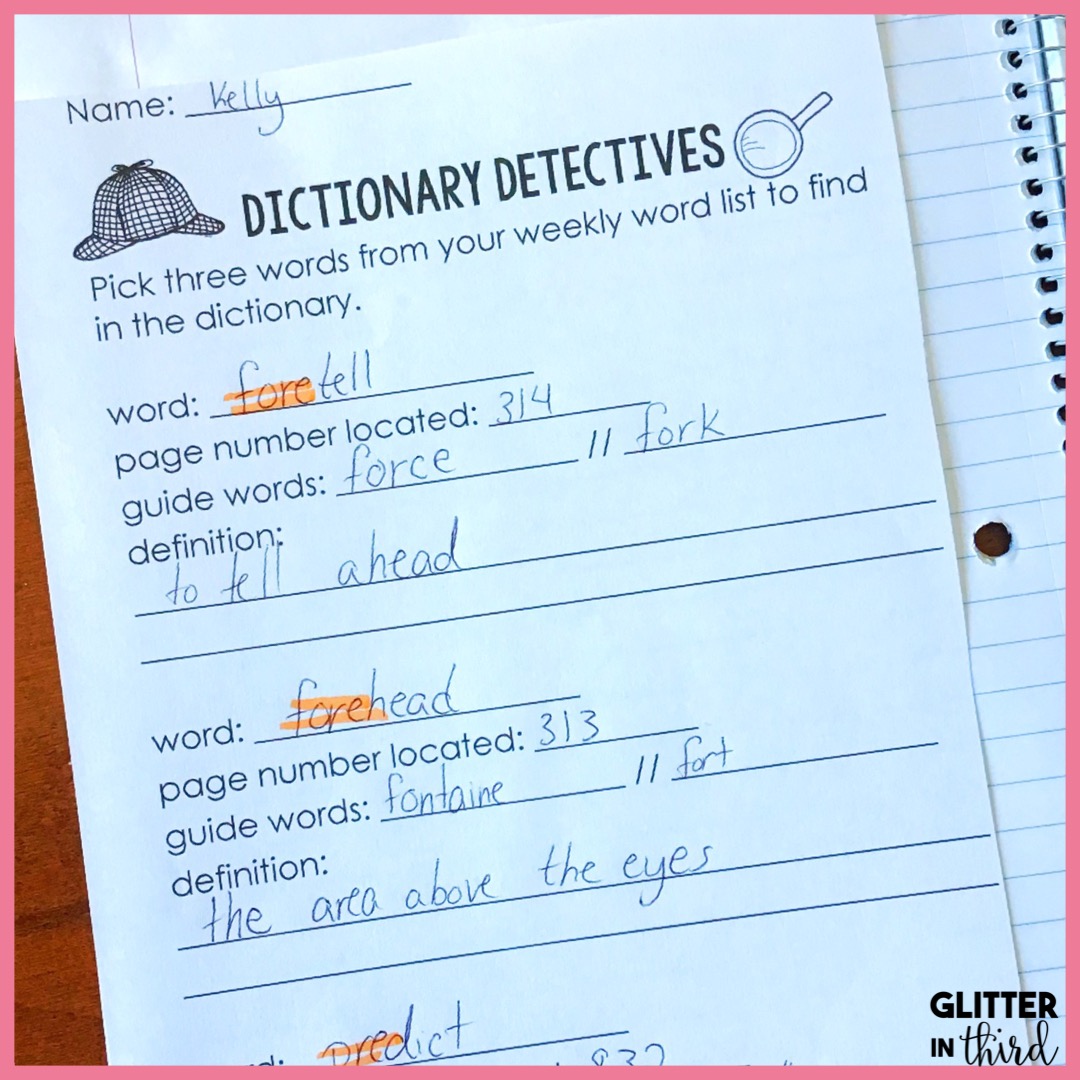 Name: Kelly
DICTIONARY DETECTIVES
Pick three words from your weekly word list to find
in the dictionary.
word: foretell
page number located: 314
guide words: force // fork
definition:
to tell ahead
word: forehead
page number located: 313
guide words: fontaine // fort
definition:
the area above the eyes
predict
GLITTER
IN third